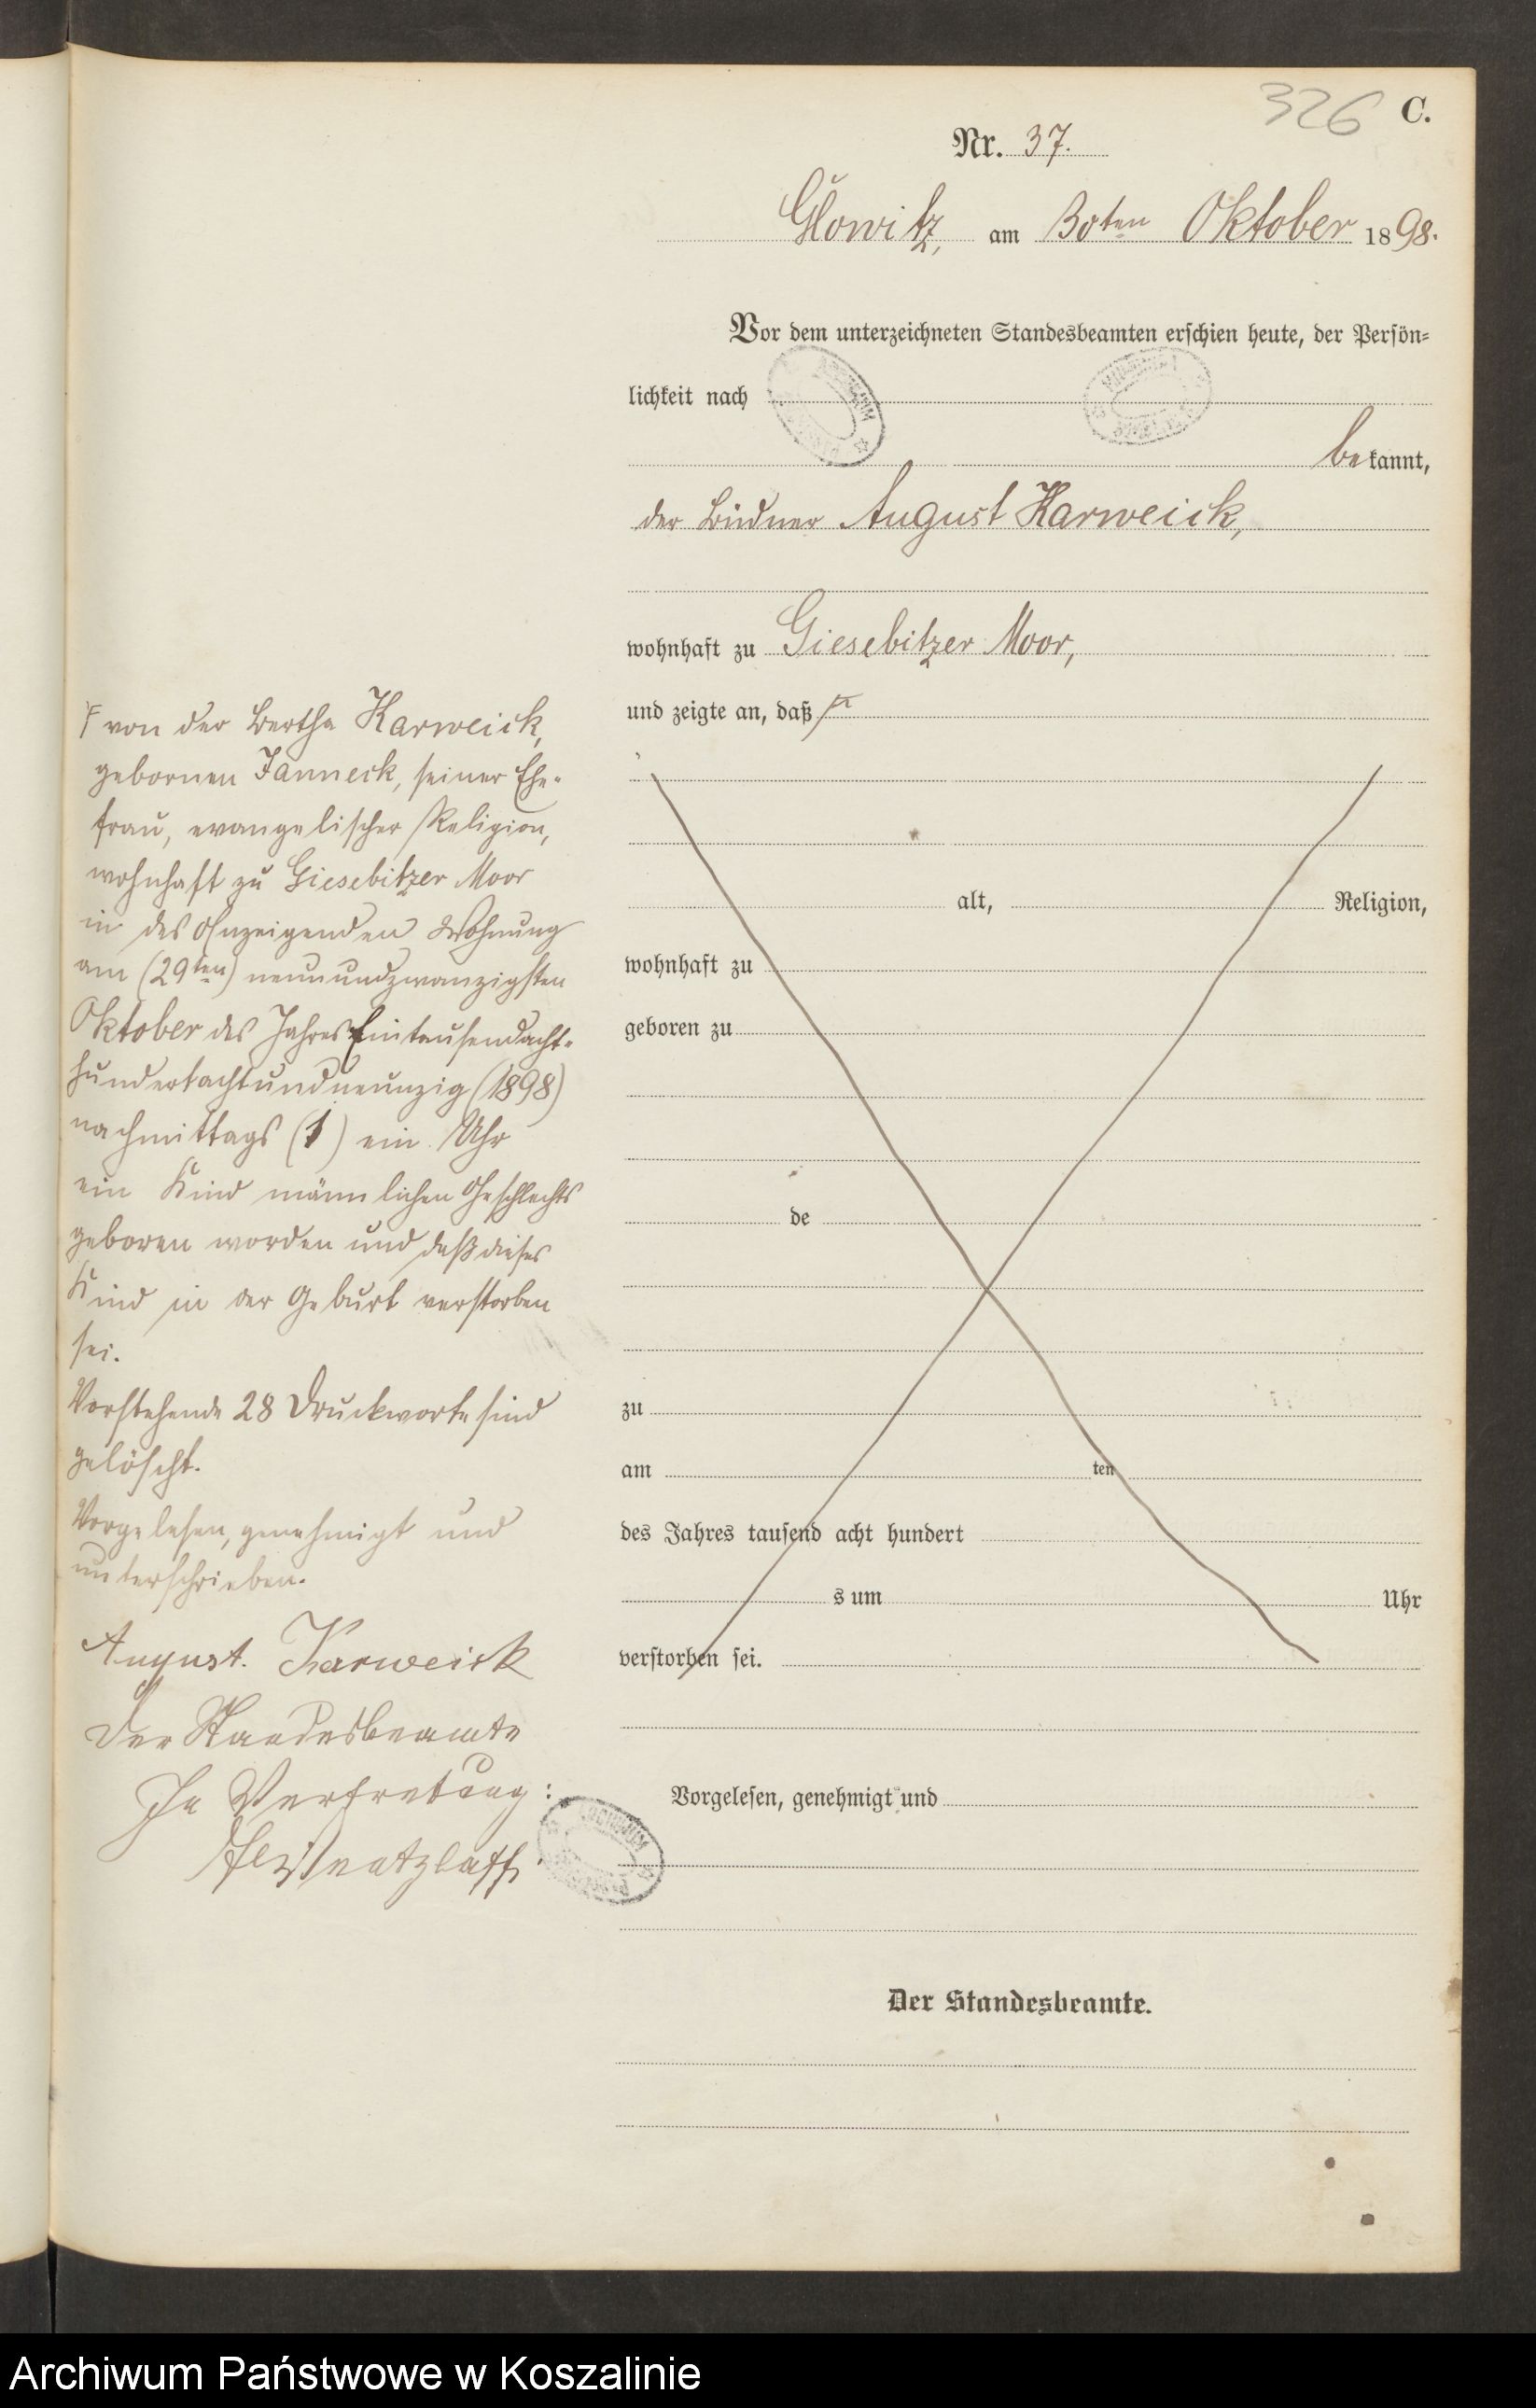 326 C.
Nr. 37.
Glowitz, am 30ten Oktober 1898.
Vor dem unterzeichneten Standesbeamten erschien heute, der Persön-
lichkeit nach
bekannt,
der Büdner August Karweick,
wohnhaft zu Giesebitzer Moor,
und zeigte an, daß
von der Bertha Karweick,
gebornen Janneck, seiner Ehe-
frau, evangelischer Religion,
wohnhaft zu Giesebitzer Moor
in des Anzeigenden Wohnung
am (29ten) neunundzwanzigsten
Oktober des Jahres Eintausendacht-
hundertachtundneunzig (1898)
nachmittags (1) ein Uhr
ein Kind männlichen Geschlechts
geboren worden und daß dieses
Kind in der Geburt verstorben
sei.
Vorstehende 28 Druckworte sind
gelöscht.
Vorgelesen, genehmigt und
unterschrieben.
August. Karweick
Der Standesbeamte
In Vertretung:
alt, Religion,
wohnhaft zu
geboren zu
de
zu
am ten
des Jahres tausend acht hundert
s um Uhr
verstorben sei.
Vorgelesen, genehmigt und
Der Standesbeamte.
Archiwum Państwowe w Koszalinie